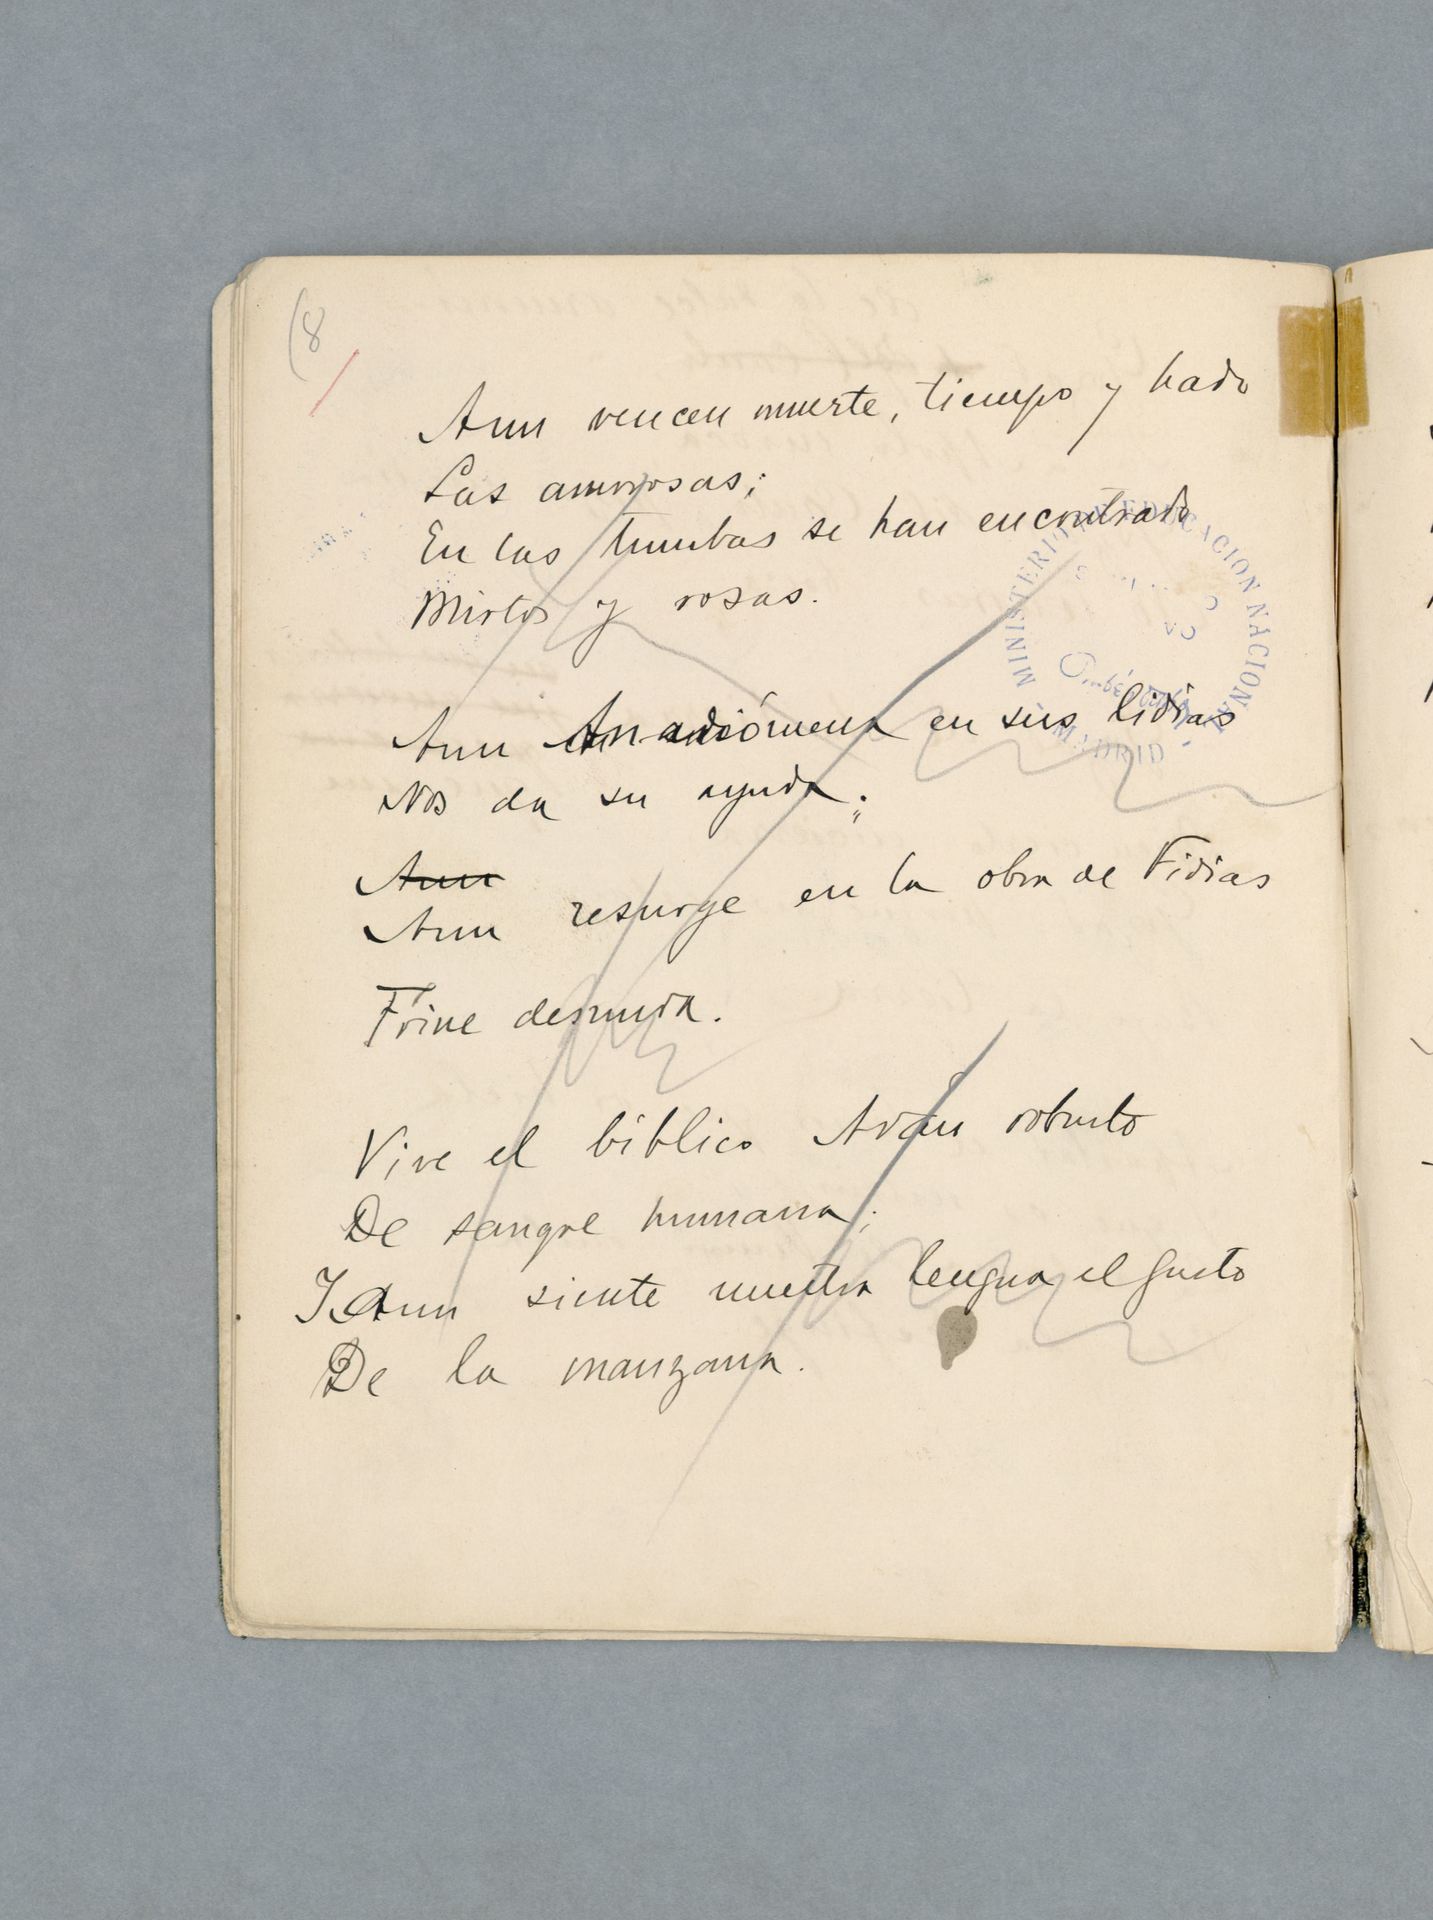 (8
Aun vencen muerte, tiempo y hado
Las amorosas;
En las tumbas se han encontrado
Mirtos y rosas.
Aun Anadiómena en sus lidias
Nos da su ayuda;
Aun
Aun resurge en la obra de Fidias
Friné desnuda.
Vive el bíblico Adan robusto
De sangre humana;
Y aun siente nuestra lengua el gusto
De la manzana.
MINISTERIO DE EDUCACION NACIONAL
MADRID